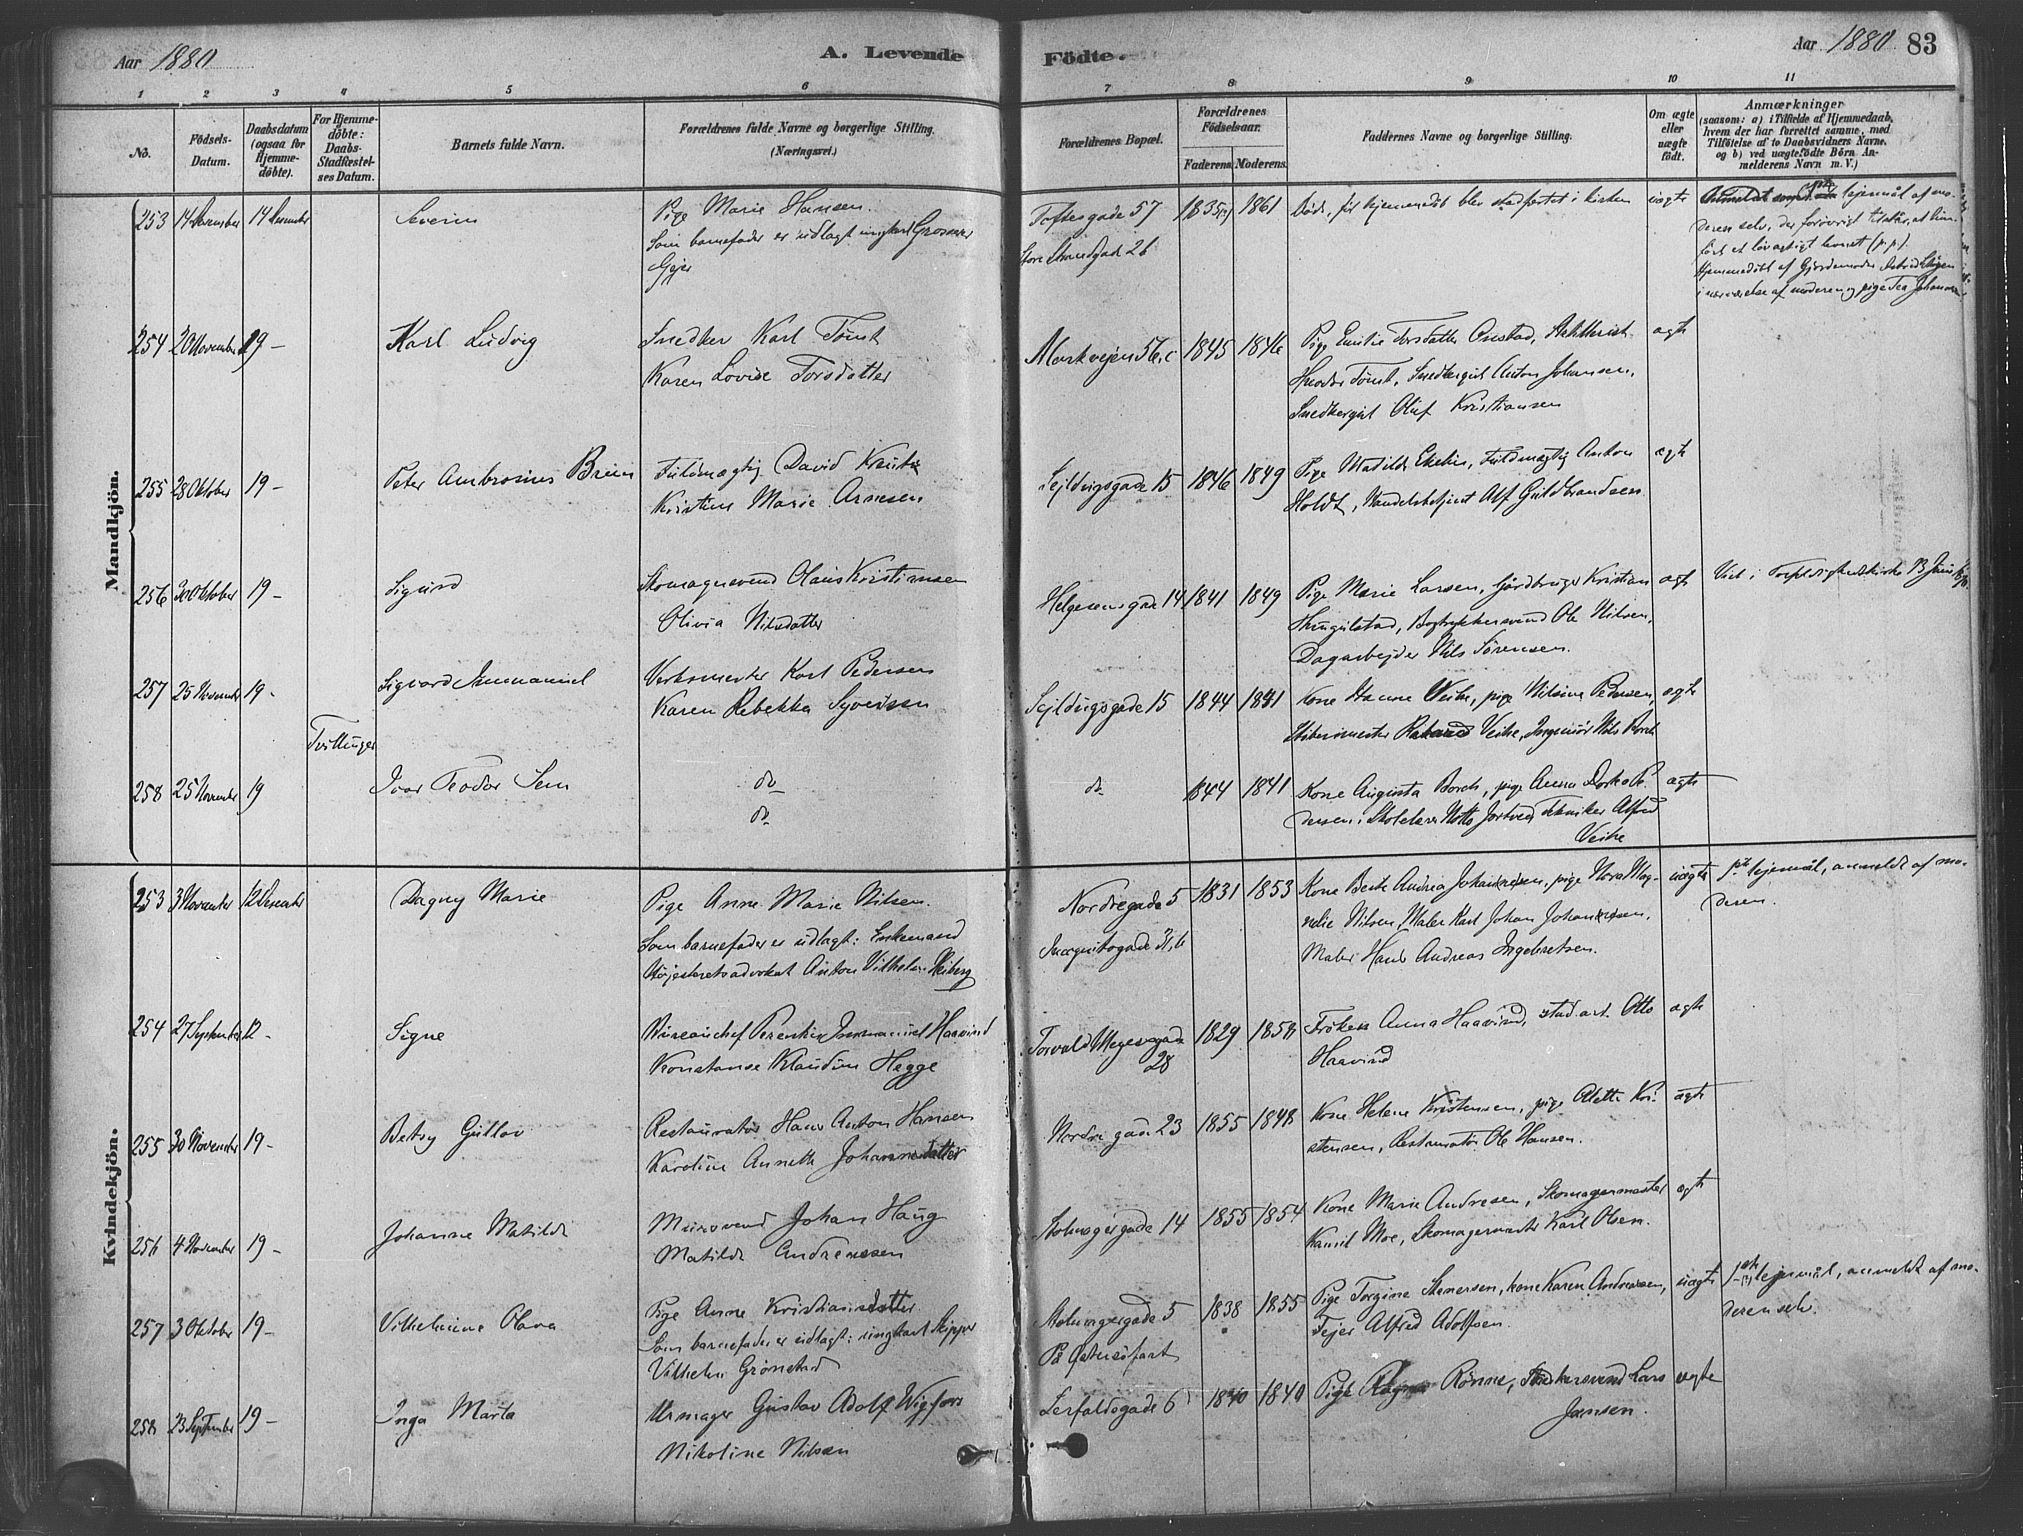 Aar 1880
A. Levende Födte.
Aar 1880
83
1 2 3 4 5 6 7 8 9 10 11
No.
Födsels-Datum.
Daabsdatum (ogsaa for Hjemme-döbte).
For Hjemme-döbte: Daabs-Stadfæstel-ses Datum.
Barnets fulde Navn.
Forældrenes fulde Navne og borgerlige Stilling. (Næringsvei.)
Forældrenes Bopæl.
Forældrenes Födselsaar.
Faderens. Moderens.
Faddernes Navne og borgerlige Stilling.
Om ægte eller uægte födt.
Anmærkninger
(saasom: a) i Tilfælde af Hjemmedaab,
hvem der har forrettet samme, med
Tilföielse af to Daabsvidners Navne,
og b) ved uægtefödte Börn An-
melderens Navn m. V.)
Mandkjön.
253 14 December 14 December Severin
Pige Marie Hansen.
Som barnefader er udlagt ungkarl
Toftesgade 57
Store Strandgade 26
1835 1861
Död, før hjemmedøb blev stadfestet i kirken
uægte
lejermål af mo-
deren selv, der forøvrigt tilstår, at
Hjemmedøbt af Gjordemoder
i nærværelse af moderen og pige Tea Johansen
254 20 November 19 - Karl Ludvig
Snedker Karl Tømt
Karen Lovise Torsdatter
Markvejen 56,c 1845 1846
Pige Emilie Torsdatter Onstad,
Theodor Tømt, Snedkergut Anton Johansen,
Snedkergut Oluf Kristiansen
ægte
255 28 Oktober 19 - Peter Ambrosius Brein
Fuldmægtig David
Kristine Marie Arnesen
Sejldugsgade 15 1846 1849
Pige Matilde Fuldmægtig Anton
Holdt, Handelsbetjent Alf Guldbrandsen
ægte
256 30 Oktober 19 - Sigurd
Skomagersvend Olaus Kristiansen
Olivia Nilsdatter
Helgesensgade 14 1841 1849
Pige Marie Larsen, Gårdbruger Kristian
Bogtrykkersvend Ole Nilsen,
Dagarbejder Nils Sørensen.
ægte
257 25 November 19 - Sigvard Immanuel
Verksmester Karl Pedersen
Karen Rebekka Syversen
Sejldugsgade 15 1844 1841
Kone Hanne Veihe, pige Nilsine Pedersen,
Veihe, Ingeniør Nils Borch
ægte
Tvillinger
258 25 November 19 Ivar Teodor Sem
do
do
do 1844 1841
Kone Augusta Borch, pige Anna Dorte Pe-
dersen, Skolelærer Tekniker Alfred
Veihe
ægte
Kvindekjön.
253 3 November 12 December Dagny Marie
Pige Anne Marie Nilsen.
Som barnefader er udlagt: Enkemand
Højesteretsadvokat Anton Vilhelm
Nordregade 5
1831 1853
Kone Berte Andrea Johannesen, pige Nora Mag-
nelie Nilsen, Maler Karl Johan Johannesen,
Maler Hans Andreas Ingebretsen.
uægte
1ste lejermål, anmeldt af mo-
deren.
254 27 September 12 - Signe
Büreauchef Immanuel Haavind
Konstanse Klaudine Hegge
Torvald Meyersgade
28
1829 1858
Frøken Anna Haavind, stud. art. Otto
Haavind
ægte
255 30 November 19 - Betsy Gullov
Restauratør Hans Anton Hansen
Karoline Annette Johannesdatter
Nordregade 23 1855 1848
Kone Helene Kristensen, pige Alette Kri-
stensen, Restauratør Ole Hansen.
ægte
256 4 November 19 - Johanne Matilde
Mursvend Johan Haug
Matilde Andreassen
Stolmagergade 14 1855 1854
Kone Marie Andresen, Skomagermester
Kamil Moe, Skomagermester Karl Olsen.
ægte
257 3 Oktober 19 - Vilhelmine Olava
Pige Anne Kristiansdatter
Som barnefader er udlagt: ungkarl Skipper
Vilhelm Grønstad
Stolmagergade 5
På Østersøfart
1838 1855
Pige Torgine Stenersen, kone Karen Andreassen,
Fejer Alfred Adolfsen.
uægte
1ste lejermål, anmeldt af mo-
deren selv.
258 23 September 19 - Inga Marta
Urmager Gustav Adolf Wigfors
Nikoline Nilsen
Lerfaldsgade 6 1840 1840
Pige Ragna Rønne, Lars
Jansen.
ægte